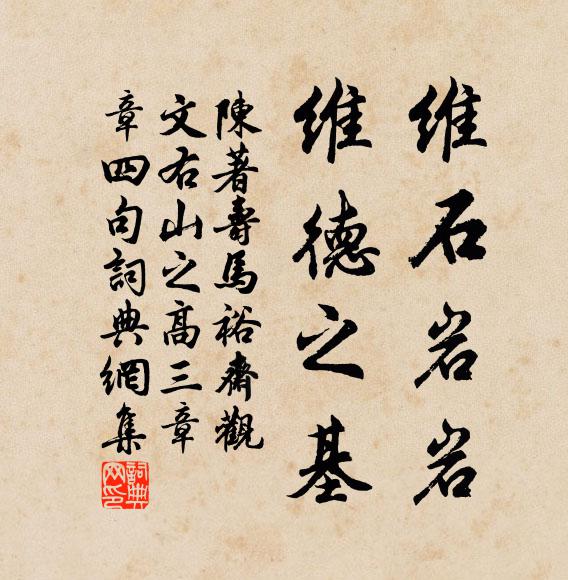 维石岩岩
维德之基
陳著壽馬裕齋觀
文右山之高三章
章四句詞典網集
詞典
网印